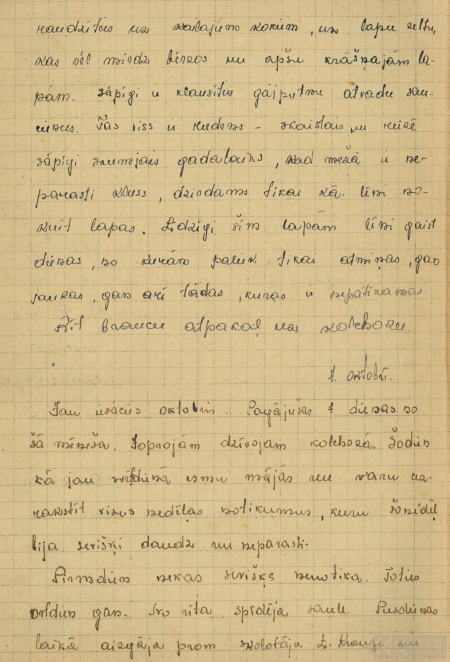 raudzīties uz kailajiem kokiem, uz lapu zeltu,
kas vēl mirdz bērzos un apšu krāšņajām la-
pām. Sāpīgi ir klausīties gājputnu atvadu sau-
cienus. Tas viss ir rudens - skaistais un reizē
sāpīgi skumjais gadalaiks, kad mežā ir ne-
parasti kluss, dzirdams tikai kā lēni no-
krīt lapas. Līdzīgi šīm lapām lēni gaist
dienas, no kurām paliek tikai atmiņas, gan
jaukas, gan arī tādas, kuras ir nepatīkamas.
Rīt braucu atpakaļ uz kolchozu.
7. oktobrī.
Jau iesācies oktobris. Pagājušas 7 dienas no
šā mēneša. Joprojām dzīvojam kolchozā. Šodien
kā jau svētdienā esmu mājās un varu uz-
rakstīt visus nedēļas notikumus, kuru šonedēļ
bija sevišķi daudz un neparasti.
Pirmdien nekas sevišķs nenotika. Toties
otrdien gan. No rīta spīdēja saule. Pusdienas
laikā aizgāja prom skolotāja L. Krauze un